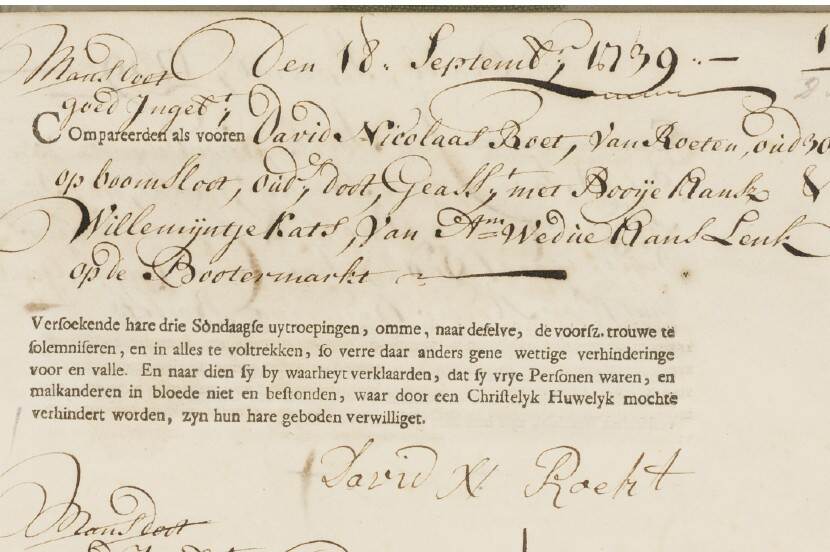 Den 18. Septemb:r 1739.. —
Mans doot
goed Inget:t
Compareerden als vooren David Nicolaas Roet, Van Roeten, oud 30
op boomsloot, oud:s doot, Geass:t met Booije Hansz &
Willemijntje Kats, Van A:m Wedúe Hans Lenk
op de Bootermarkt
Versoekende hare drie Sondaagse uytroepingen, omme, naar deselve, de voorsz. trouwe te
solemniseren, en in alles te voltrekken, so verre daar anders gene wettige verhinderinge
voor en valle. En naar dien sy by waarheyt verklaarden, dat sy vrye Personen waren, en
malkanderen in bloede niet en bestonden, waar door een Christelyk Huwelyk mochte
verhindert worden, zyn hun hare geboden verwilliget.
David N: Roeht
Mans doot